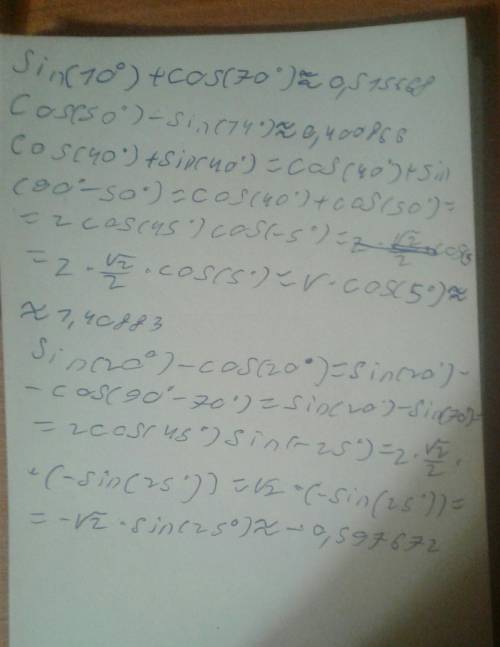 Sin(10°)+cos(70°)≈0,515668
Cos(50°)-Sin(14°)≈0,400866
Cos(40°)+Sin(40°)=Cos(40°)+Sin
(90°-50°)=cos(40°)+cos(50°)=
=2cos(45°)cos(-5°)=
=2·√2/2·cos(5°)=√·cos(5°)≈
≈1,40883
Sin(20°)-cos(20°)=Sin(20°)-
-cos(90°-70°)=Sin(20°)-Sin(70°)=
=2cos(45°)Sin(-25°)=2·√2/2·
·(-Sin(25°))=√2·(-Sin(25°))=
=-√2·Sin(25°)≈-0,597672